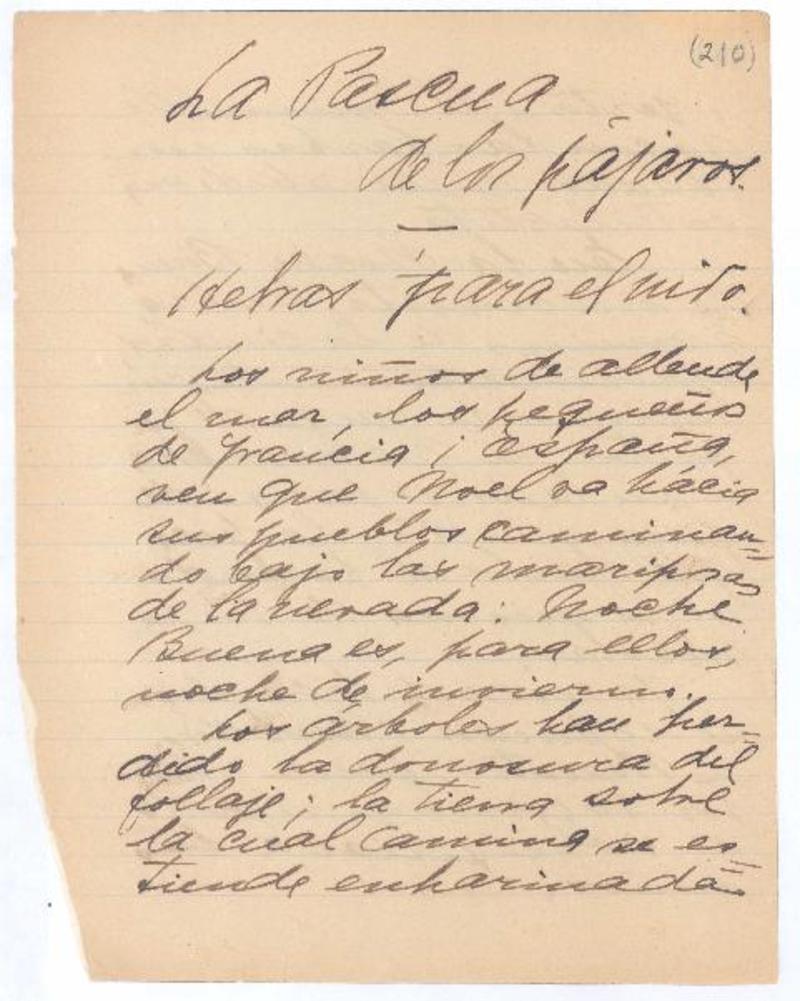 (210)
La Pascua
de los pájaros.
Hebras para el nido.
Los niños de allende
el mar, los pequeños
de Francia i España,
ven que Noel va hácia
sus pueblos caminan-
do bajo las mariposas
de la nevada: Noche
Buena es, para ellos,
noche de invierno.
Los árboles han per-
dido la donosura del
follaje; la tierra sobre
la cual camina se es-
tiende enharinada.